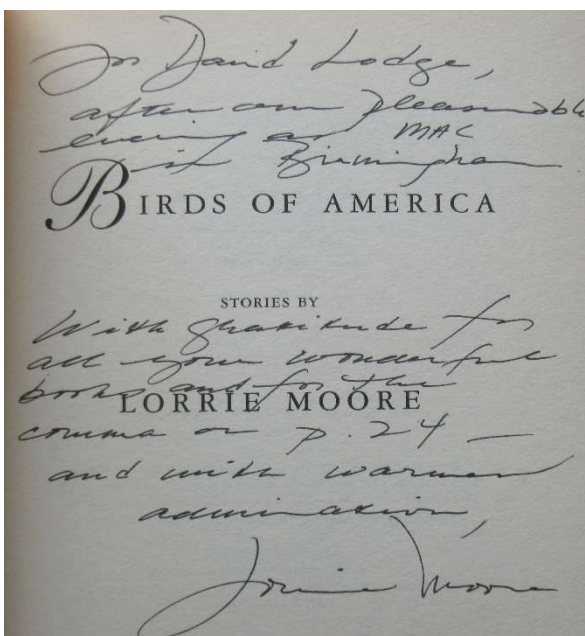 For David Lodge,
after our pleasurable
evening at MAC
in Birmingham
BIRDS OF AMERICA
STORIES BY
With gratitude for
all your wonderful
books and for the
LORRIE MOORE
comma on p. 24 —
and with warmest
admiration,
Lorrie Moore